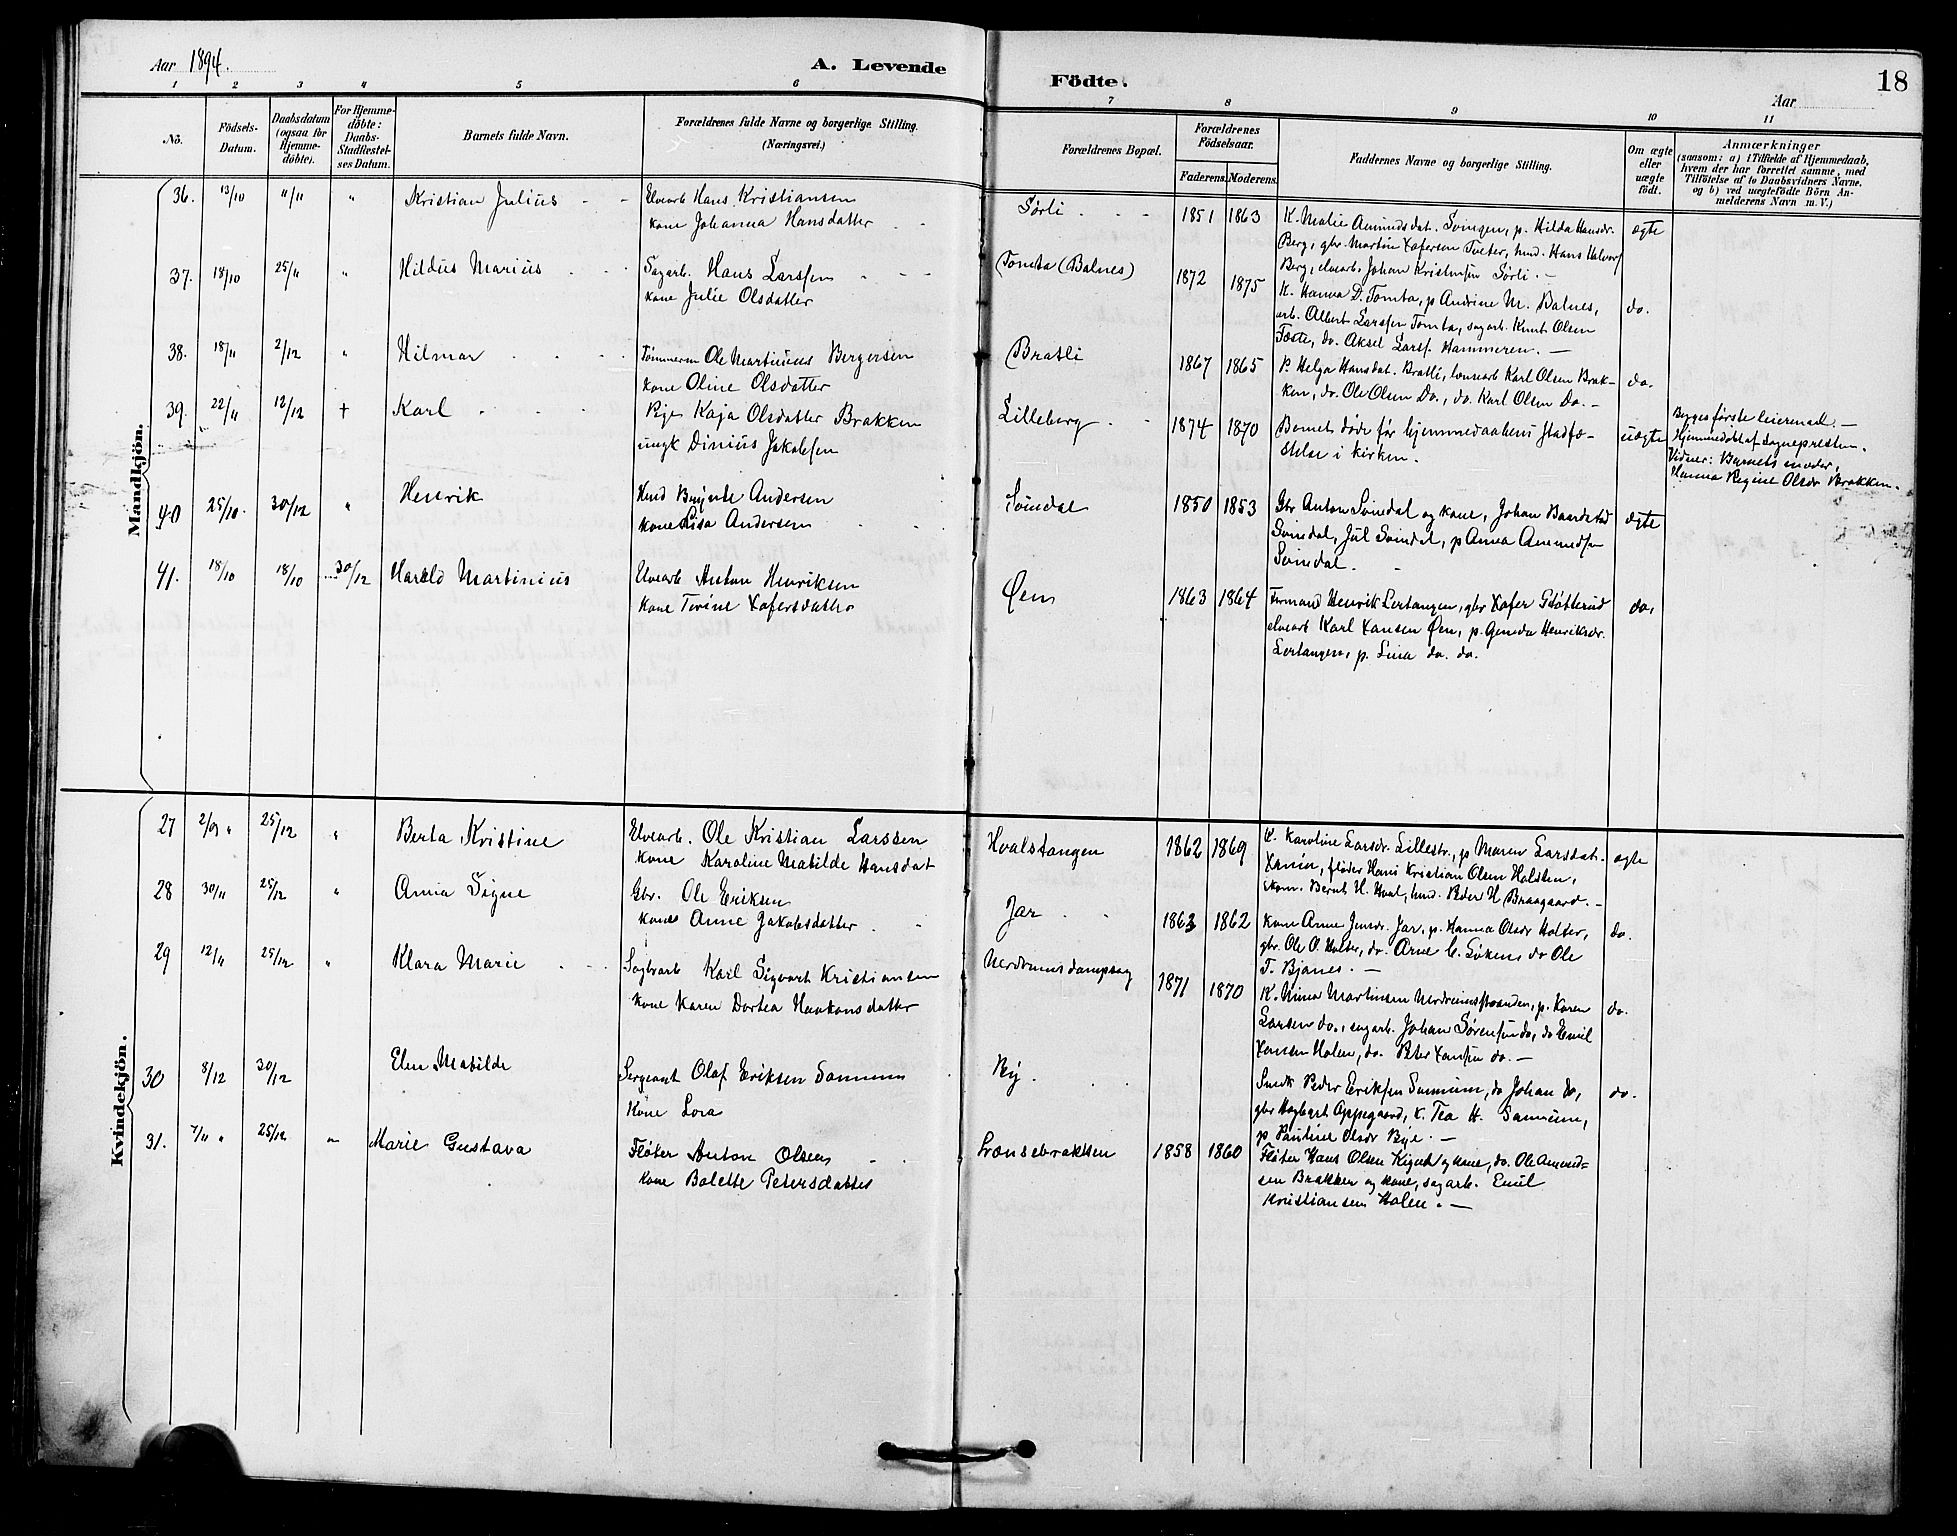 Aar 1894.
A. Levende
Födte.
Aar
18
1 2 3 4 5 6 7 8 9 10 11
No.
Födsels-
Datum.
Daabsdatum
(ogsaa for
Hjemme-
döbte).
For Hjemme-
döbte:
Daabs-
Stadfæstel-
ses Datum.
Barnets fulde Navn.
Forældrenes fulde Navne og borgerlige Stilling.
(Næringsvei.)
Forældrenes Bopæl.
Forældrenes
Födselsaar.
Faderens. Moderens.
Faddernes Navne og borgerlige Stilling.
Om ægte
eller
uægte
födt.
Anmærkninger
(saasom: a) i Tilfælde af Hjemmedaab,
hvem der har forrettet samme, med
Tilföielse af to Daabsvidners Navne,
og b) ved uægtefödte Börn An-
melderens Navn m. V.)
Mandkjön.
36. 13/10 11/11 " Kristian Julius - - Elvearb Hans Kristiansen
kone Johanna Hansdatter
Sørli 1851 1863 K. Malie Amundsdat. Svingen, p. Hilda Hansdr.
Berg, gbr. Martin Tveter, hmd. Hans Halvors
Berg, elvearb. Johan Kristensen Sørli. -
ægte
37. 18/10 25/11 " Hildus Marius Sagarb. Hans Larssen
kone Julie Olsdatter
Tomta (Balnes) 1872 1875 K. Hanna D. Tomta, p Andrine M. Balnes,
arb. Albert Larssen Tomta, sagarb. Knut Olsen
Foste, do. Aksel Larss. Hammeren. -
do.
38. 18/11 2/12 " Hilmar Tømmerm Ole Martinius Bergersen
kone Oline Olsdatter
Bratli 1867 1865 P. Helga Hansdat. Bratli, lænsearb Karl Olsen Brak-
ken, do. Ole Olsen Do., do. Karl Olsen Do. -
do.
39. 22/11 12/12 + Karl Pige Kaja Olsdatter Brakken
ungk Dinius Jakobsen
Lilleberg 1874 1870 Barnet døde før hjemmedaabens stadfæ-
stelse i kirken.
uægte
Begges første leiermaal. -
Hjemmedøbt af Sognepresten.
Vidner: Barnets moder,
Hanna Regine Olsdr Brakken.
40 25/10. 30/12 " Henrik Hmd Andersen
kone Lisa Andersen
Soindal 1850 1853 Gbr Anton Soindal og kone, Johan Baardstad
Soindal, Jul Soindal, p Anna Amundsen
Soindal.
ægte
41. 18/10 18/10 30/12 Harald Martinius Elvearb Anton Henriksen
kone Terine Xofersdatter
Øien 1863 1864 Formand Henrik Lertangen, gbr Xofer
elvearb Karl Hansen Øen, p. Henriksdr.
Lertangen, p. Lina do. do.
do,
Kvindekjön.
27 2/9 " 25/12 " Berta Kristine Elvearb. Ole Kristian Larssen
kone Karoline Matilde Hansdat
Hvalstangen 1862 1869 K. Karoline Larsdr. Lillestr., p Maren Larsdat.
fløter Hans Kristian Olsen Holsten,
skom. Bernt H. Hval, hmd. Peder H Braagaard. -
ægte
28 30/11 25/12 " Anna Signe Gbr. Ole Eriksen
kone Anne Jakobsdatter
Jar 1863 1862 Kone Anne Jensdr. Jar, p. Hanna Olsdr Holter,
gbr. Ole O. Holter, do. Arne C. Løken do Ole
T. Bjanes. -
do.
29 12/11 25/12 " Klara Marie Sagbarb Karl Sigvart Kristiansen
kone Karen Dortea Haakonsdatter
Nerdrumsdampsag 1871 1870 K. Mina Martinsen Nerdrumsstranden, p. Karen
Larsen do., sagarb. Johan Sørensen do, do Emil
Hansen Holen, do. Peter Hansen do. -
do.
30 8/12 30/12 Elen Matilde Sergeant Olaf Eriksen Sannum
Kone Lora
By Smedk Peder Eriksen Sannum, do Johan do,
gbr Hagbart Oppegaard, K. Tea H. Sannum,
p. Pauline Olsdr Bye. -
do.
31. 7/11 " 25/12 " Marie Gustava Fløter Anton Olsen
kone Bolette Petersdatter
Lænsebrakken 1858 1860 Fløter Hans Olsen og kone, do. Ole Amund-
sen Brakken og kone, sagarb. Emil
Kristiansen Holen. -